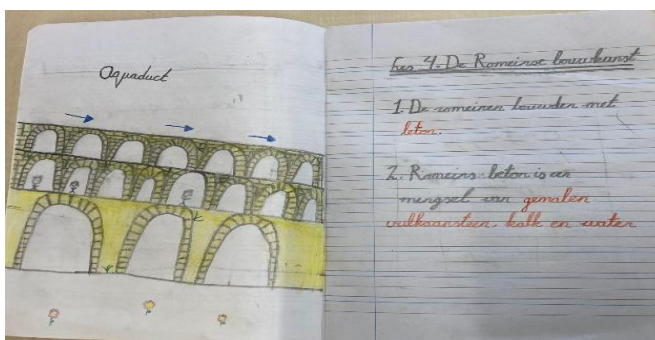 Aquaduct
Les 4. De Romeinse bouwkunst
1. De romeinen bouwden met
beton.
2. Romeins beton is een
mengsel van gemalen
vulkaansteen, kalk en water